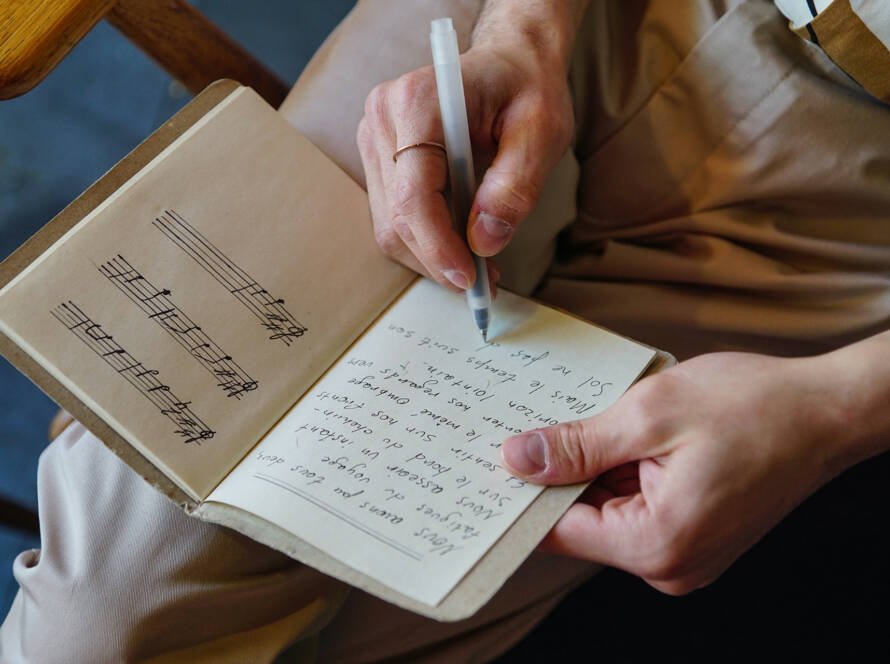 Nous avons pu tous deux,
fatigués du voyage
Nous asseoir un instant
Sur le bord du chemin-
sentir sur nos fronts
le même, Ombrage
nos regards vers
lointain.-
Mais le temps suit son
ne pas